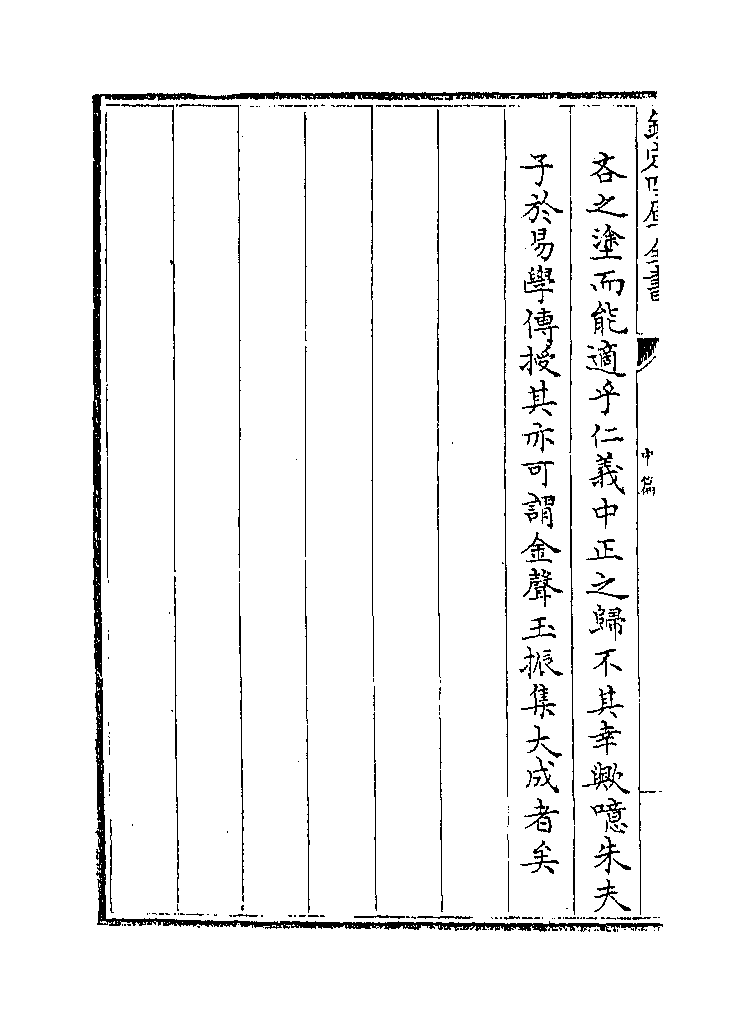 欽定四庫全書
中篇
吝之塗而能適乎仁義中正之歸不其幸歟噫朱夫
子於易學傳授其亦可謂金聲玉振集大成者矣